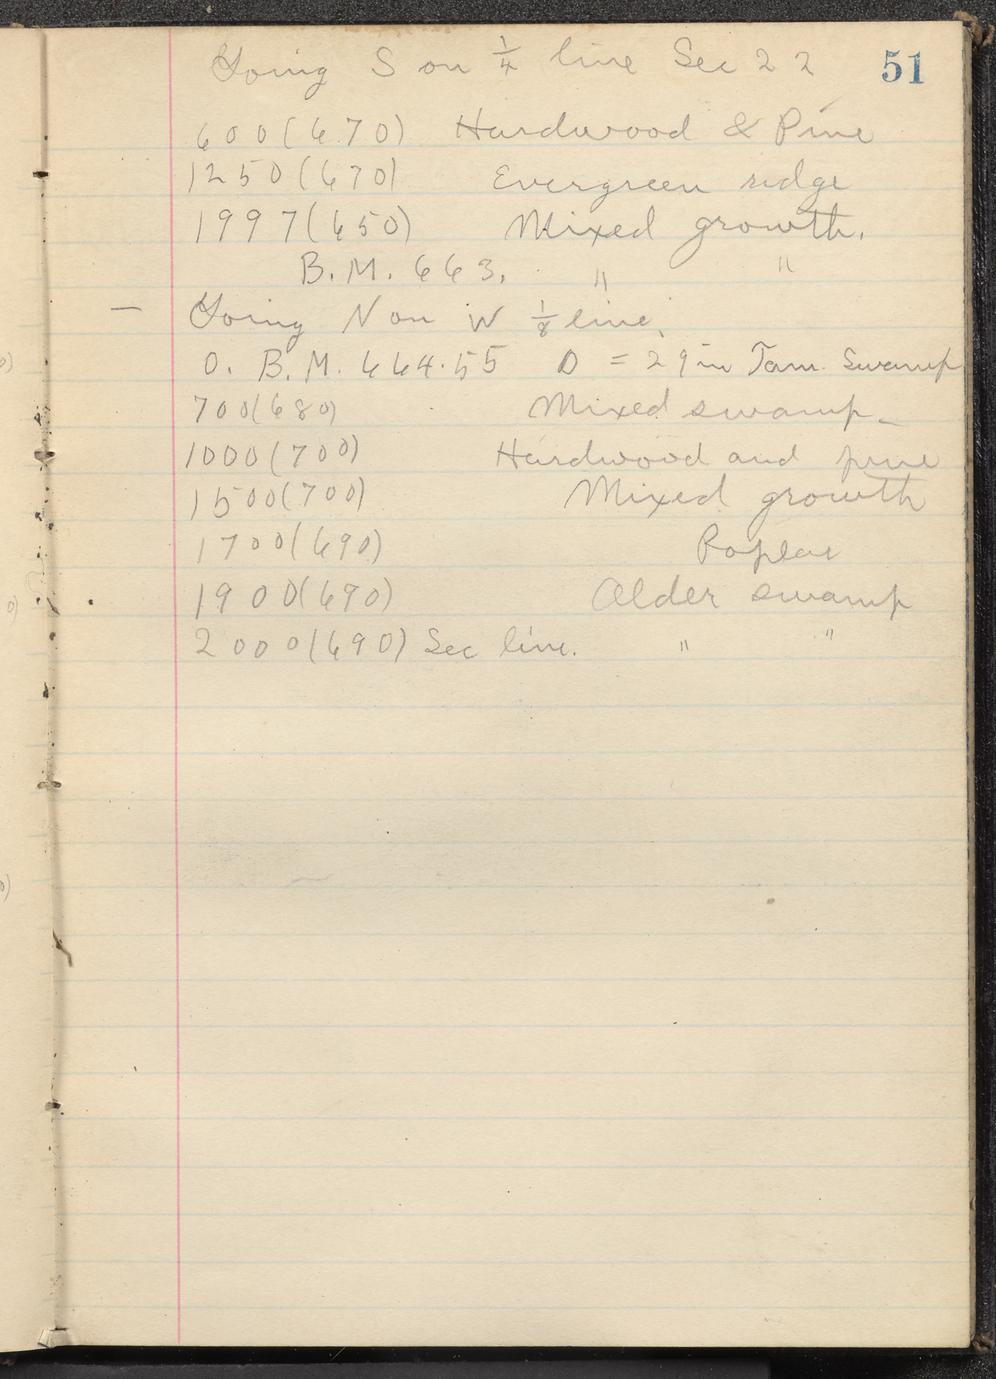 Going S on 1/4 line Sec 22 51
600(670) Hardwood & Pine
1250(670) Evergreen ridge
1997(650) Mixed growth.
B.M. 663. " "
— Going N on W 1/8 line.
0. B.M. 664.55 D = 29 in Tam. Swamp
700(680) Mixed swamp
1000(700) Hardwood and pine
1500(700) Mixed growth
1700(690) Poplar
1900(690) Alder swamp
2000(690) Sec line. " "